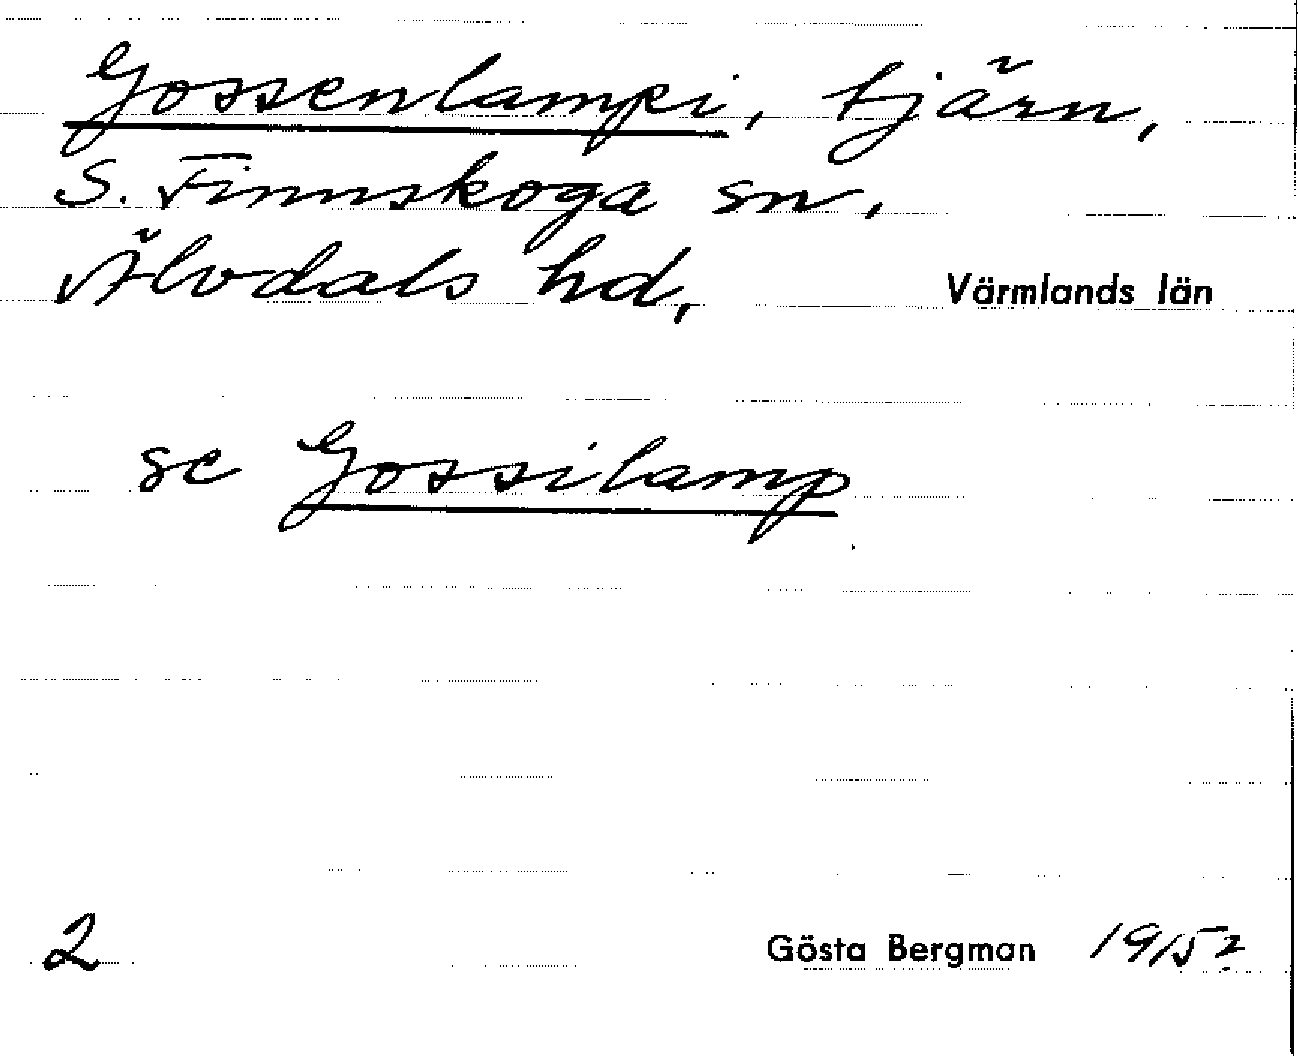 Gossenlampi, tjärn,
S. Finnskoga sn,
Älvdals hd, Värmlands län
se Gossilamp
2 Gösta Bergman 1952